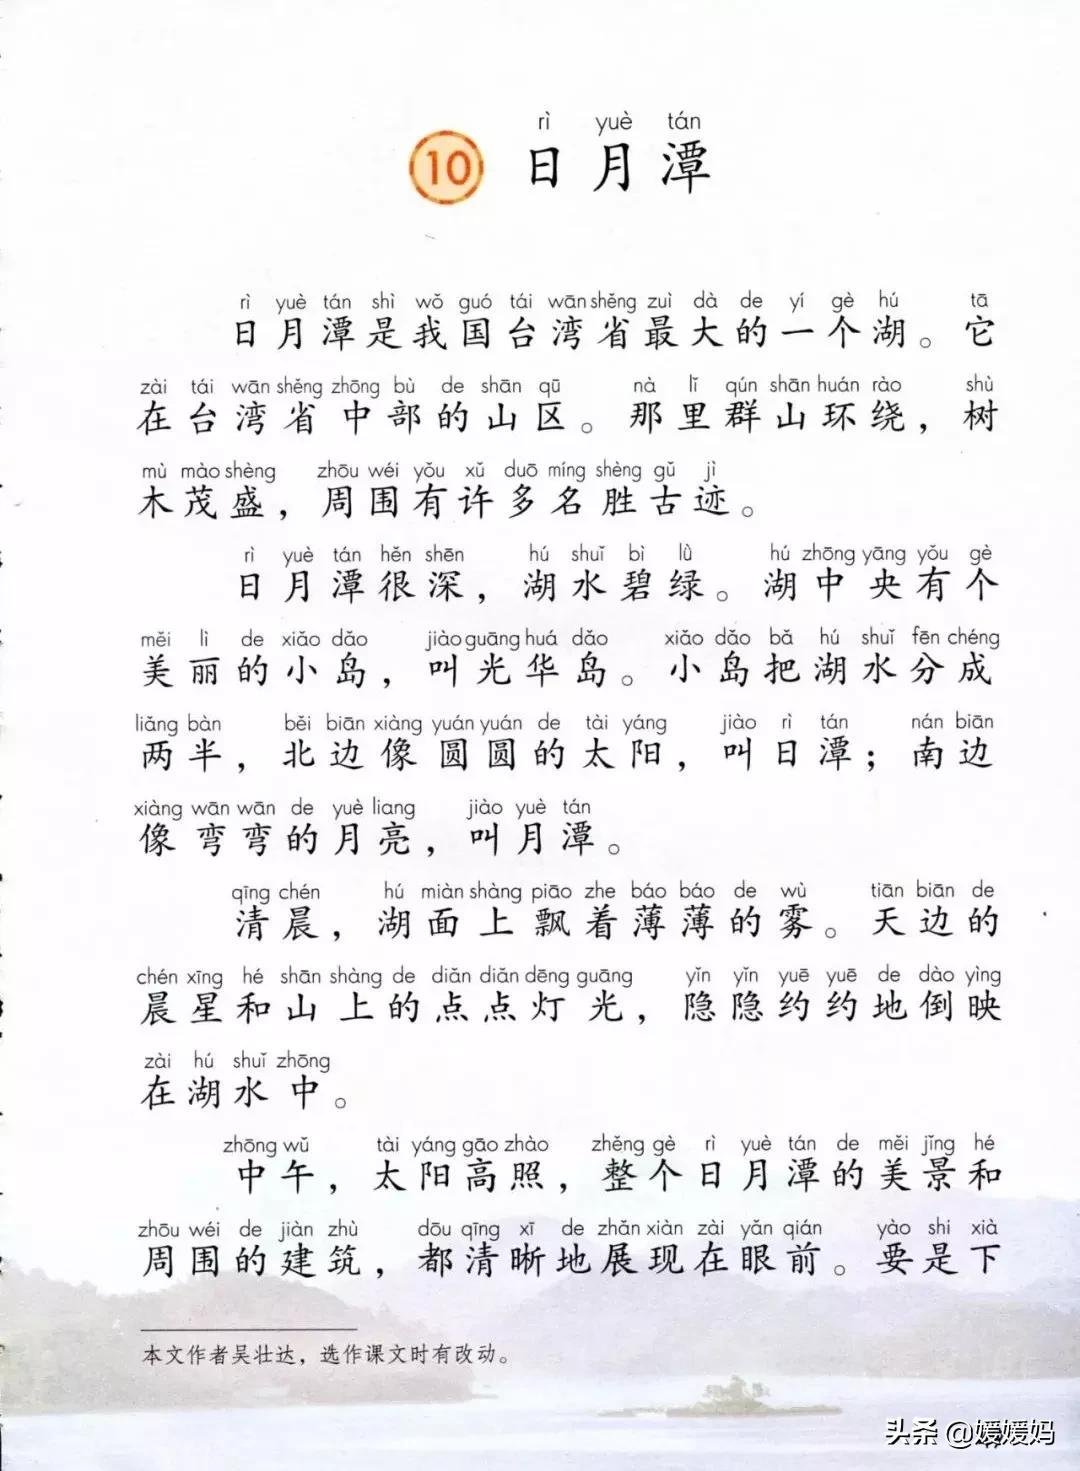 rì yuè tán
10 日月潭
rì yuè tán shì wǒ guó tái wān shěng zuì dà de yí gè hú tā
日月潭是我国台湾省最大的一个湖。它
zài tái wān shěng zhōng bù de shān qū nà lǐ qún shān huán rào shù
在台湾省中部的山区。那里群山环绕，树
mù mào shèng zhōu wéi yǒu xǔ duō míng shèng gǔ jì
木茂盛，周围有许多名胜古迹。
rì yuè tán hěn shēn hú shuǐ bì lǜ hú zhōng yāng yǒu gè
日月潭很深，湖水碧绿。湖中央有个
měi lì de xiǎo dǎo jiào guāng huá dǎo xiǎo dǎo bǎ hú shuǐ fēn chéng
美丽的小岛，叫光华岛。小岛把湖水分成
liǎng bàn běi biān xiàng yuán yuán de tài yáng jiào rì tán nán biān
两半，北边像圆圆的太阳，叫日潭；南边
xiàng wān wān de yuè liang jiào yuè tán
像弯弯的月亮，叫月潭。
qīng chén hú miàn shàng piāo zhe báo báo de wù tiān biān de
清晨，湖面上飘着薄薄的雾。天边的
chén xīng hé shān shàng de diǎn diǎn dēng guāng yǐn yǐn yuē yuē de dào yìng
晨星和山上的点点灯光，隐隐约约地倒映
zài hú shuǐ zhōng
在湖水中。
zhōng wǔ tài yáng gāo zhào zhěng gè rì yuè tán de měi jǐng hé
中午，太阳高照，整个日月潭的美景和
zhōu wéi de jiàn zhù dōu qīng xī de zhǎn xiàn zài yǎn qián yào shi xià
周围的建筑，都清晰地展现在眼前。要是下
本文作者吴壮达，选作课文时有改动。
头条 @媛媛妈